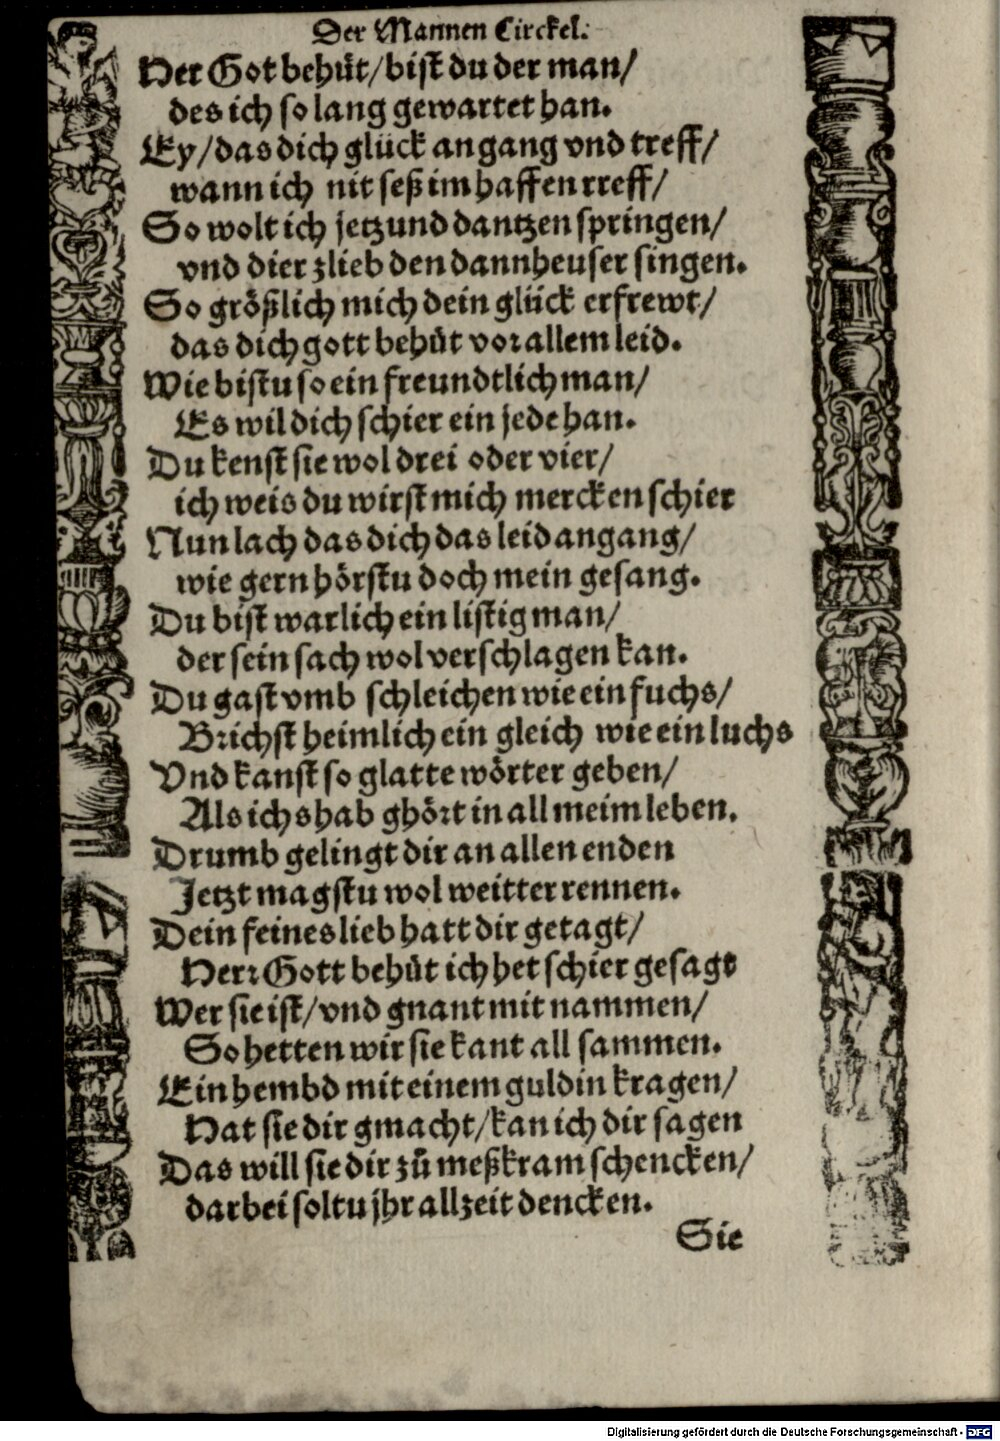 Der Mannen Circkel.
Her Got behüt/bist du der man/
des ich so lang gewartet han.
Ey/das dich glück angang vnd treff/
wann ich nit seß im haffen rreff/
So wolt ich jetzund dantzen springen/
vnd dier zlieb den dannheuser singen.
So größlich mich dein glück erfrewt/
das dich gott behüt vor allem leid.
Wie bistu so ein freundtlich man/
Es wil dich schier ein jede han.
Du kenst sie wol drei oder vier/
ich weis du wirst mich mercken schier
Nun lach das dich das leid angang/
wie gern hörstu doch mein gesang.
Du bist warlich ein listig man/
der sein sach wol verschlagen kan.
Du gast vmb schleichen wie ein fuchs/
Brichst heimlich ein gleich wie ein luchs
Vnd kanst so glatte wörter geben/
Als ichs hab ghört in all meim leben.
Drumb gelingt dir an allen enden
Jetzt magstu wol weitter rennen.
Dein feines lieb hatt dir getagt/
Herr Gott behüt ich het schier gesagt
Wer sie ist/vnd gnant mit nammen/
So hetten wir sie kant all sammen.
Ein hembd mit einem guldin kragen/
Hat sie dir gmacht/kan ich dir sagen
Das will sie dir zů meßkram schencken/
darbei soltu jhr allzeit dencken.
Sie
Digitalisierung gefördert durch die Deutsche Forschungsgemeinschaft - DFG